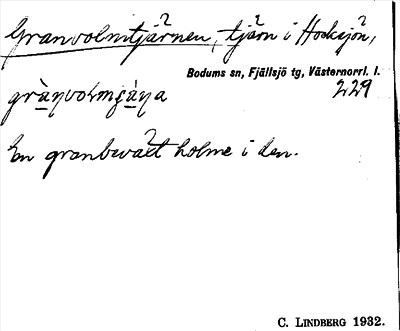 Granvolmstjärnen, tjärn i Hocksjön,
Bodums sn, Fjällsjö tg, Västernorrl. l.
229
En granbevä̊xt holme i den.
C. LINDBERG 1932.